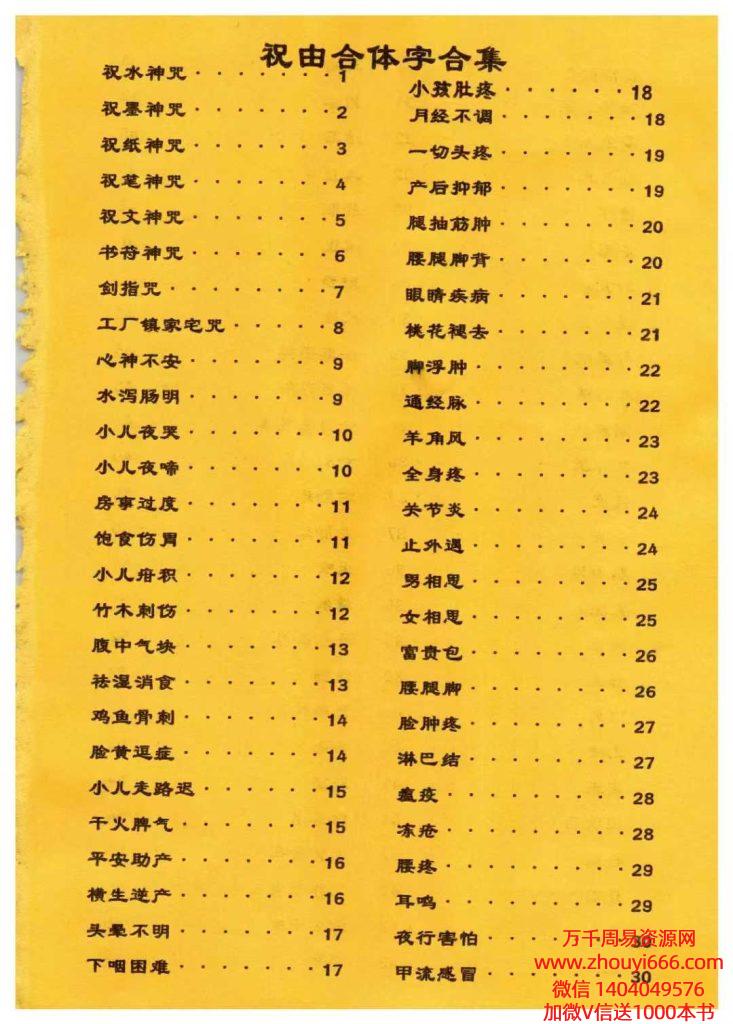 祝由合体字合集
祝水神咒 · · · · · · · 1
祝墨神咒 · · · · · · · 2
祝纸神咒 · · · · · · · 3
祝笔神咒 · · · · · · · 4
祝文神咒 · · · · · · · 5
书符神咒 · · · · · · · 6
剑指咒 · · · · · · · · 7
工厂镇家宅咒 · · · · · 8
心神不安 · · · · · · · 9
水泻肠明 · · · · · · · 9
小儿夜哭 · · · · · · · 10
小儿夜啼 · · · · · · · 10
房事过度 · · · · · · · 11
饱食伤胃 · · · · · · · 11
小儿疳积 · · · · · · · 12
竹木刺伤 · · · · · · · 12
腹中气块 · · · · · · · 13
祛湿消食 · · · · · · · 13
鸡鱼骨刺 · · · · · · · 14
脸黄逗症 · · · · · · · 14
小儿走路迟 · · · · · · 15
干火脾气 · · · · · · · 15
平安助产 · · · · · · · 16
横生逆产 · · · · · · · 16
头晕不明 · · · · · · · 17
下咽困难 · · · · · · · 17
小孩肚疼 · · · · · · 18
月经不调 · · · · · · · 18
一切头疼 · · · · · · · 19
产后抑郁 · · · · · · · 19
腿抽筋肿 · · · · · · · 20
腰腿脚背 · · · · · · · 20
眼睛疾病 · · · · · · · 21
桃花褪去 · · · · · · · 21
脚浮肿 · · · · · · · · 22
通经脉 · · · · · · · · 22
羊角风 · · · · · · · · 23
全身疼 · · · · · · · · 23
关节炎 · · · · · · · · 24
止外遇 · · · · · · · · 24
男相思 · · · · · · · · 25
女相思 · · · · · · · · 25
富贵包 · · · · · · · · 26
腰腿脚 · · · · · · · · 26
脸肿疼 · · · · · · · · 27
淋巴结 · · · · · · · · 27
瘟疫 · · · · · · · · · 28
冻疮 · · · · · · · · · 28
腰疼 · · · · · · · · · 29
耳鸣 · · · · · · · · · 29
夜行害怕 · · · · · · · 30
甲流感冒 · · · · · · · 30
万千周易资源网
www.zhouyi666.com
微信 1404049576
加微V信送1000本书